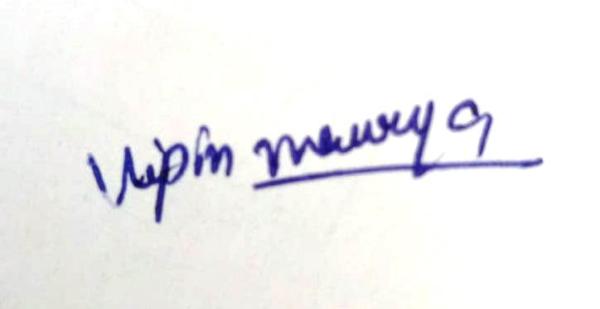 Vipin maurya